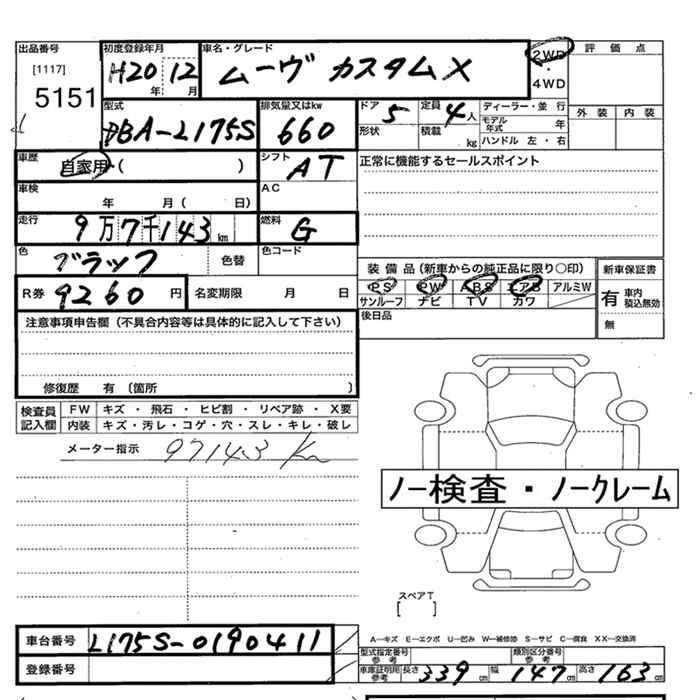 出品番号
[1117]
5151
初度登録年月
H20年12月
車名・グレード
ムーヴ カスタムX
2WD
・
4WD
評価点
外装 内装
型式
DBA-L175S
排気量又はkw
660
ドア 5
形状
定員 4人
積載 kg
ディーラー・並行
モデル年式 年
ハンドル 左・右
車歴
自家用・( )
シフト
AT
正常に機能するセールスポイント
車検
年 月( 日)
AC
走行
9万7千143km
燃料
G
色
ブラック
色替
色コード
装備品(新車からの純正品に限り○印)
PS PW ABS エアB アルミW
サンルーフ ナビ TV カワ
新車保証書
有 車内積込無効
無
R券 9260円
名変期限 月 日
後日品
注意事項申告欄(不具合内容等は具体的に記入して下さい)
修復歴 有 (箇所 )
検査員記入欄
FW キズ・飛石・ヒビ割・リペア跡・X要
内装 キズ・汚レ・コゲ・穴・スレ・キレ・破レ
メーター指示 97143 Km
ノー検査・ノークレーム
スペアT
[ ]
車台番号 L175S-0190411
登録番号
A―キズ E―エクボ U―凹み W―補修跡 S―サビ C―腐食 XX―交換済
型式指定番号 参考
類別区分番号 参考
車庫証明用 参考 長さ 339cm 幅 147cm 高さ 163cm